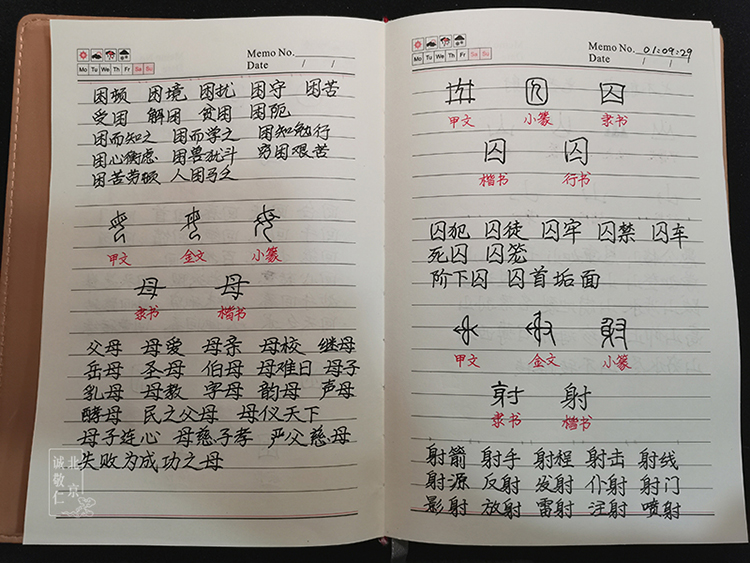 Memo No.
Mo Tu We Th Fr Sa Su
Date / /
困顿 困境 困扰 困守 困苦
受困 解困 贫困 困阨
困而知之 困而学之 困知勉行
困心衡虑 困兽犹斗 穷困艰苦
困苦劳顿 人困马乏
甲文 金文 小篆
母 母
隶书 楷书
父母 母爱 母亲 母校 继母
岳母 圣母 伯母 母难日 母子
乳母 母教 字母 韵母 声母
酵母 民之父母 母仪天下
母子连心 母慈子孝 严父慈母
失败为成功之母
北京
诚敬仁
Memo No. 01:09:29
Mo Tu We Th Fr Sa Su
Date / /
囚
甲文 小篆 隶书
囚 囚
楷书 行书
囚犯 囚徒 囚牢 囚禁 囚车
死囚 囚笼
阶下囚 囚首垢面
甲文 金文 小篆
射 射
隶书 楷书
射箭 射手 射程 射击 射线
射源 反射 发射 仆射 射门
影射 放射 雷射 注射 喷射